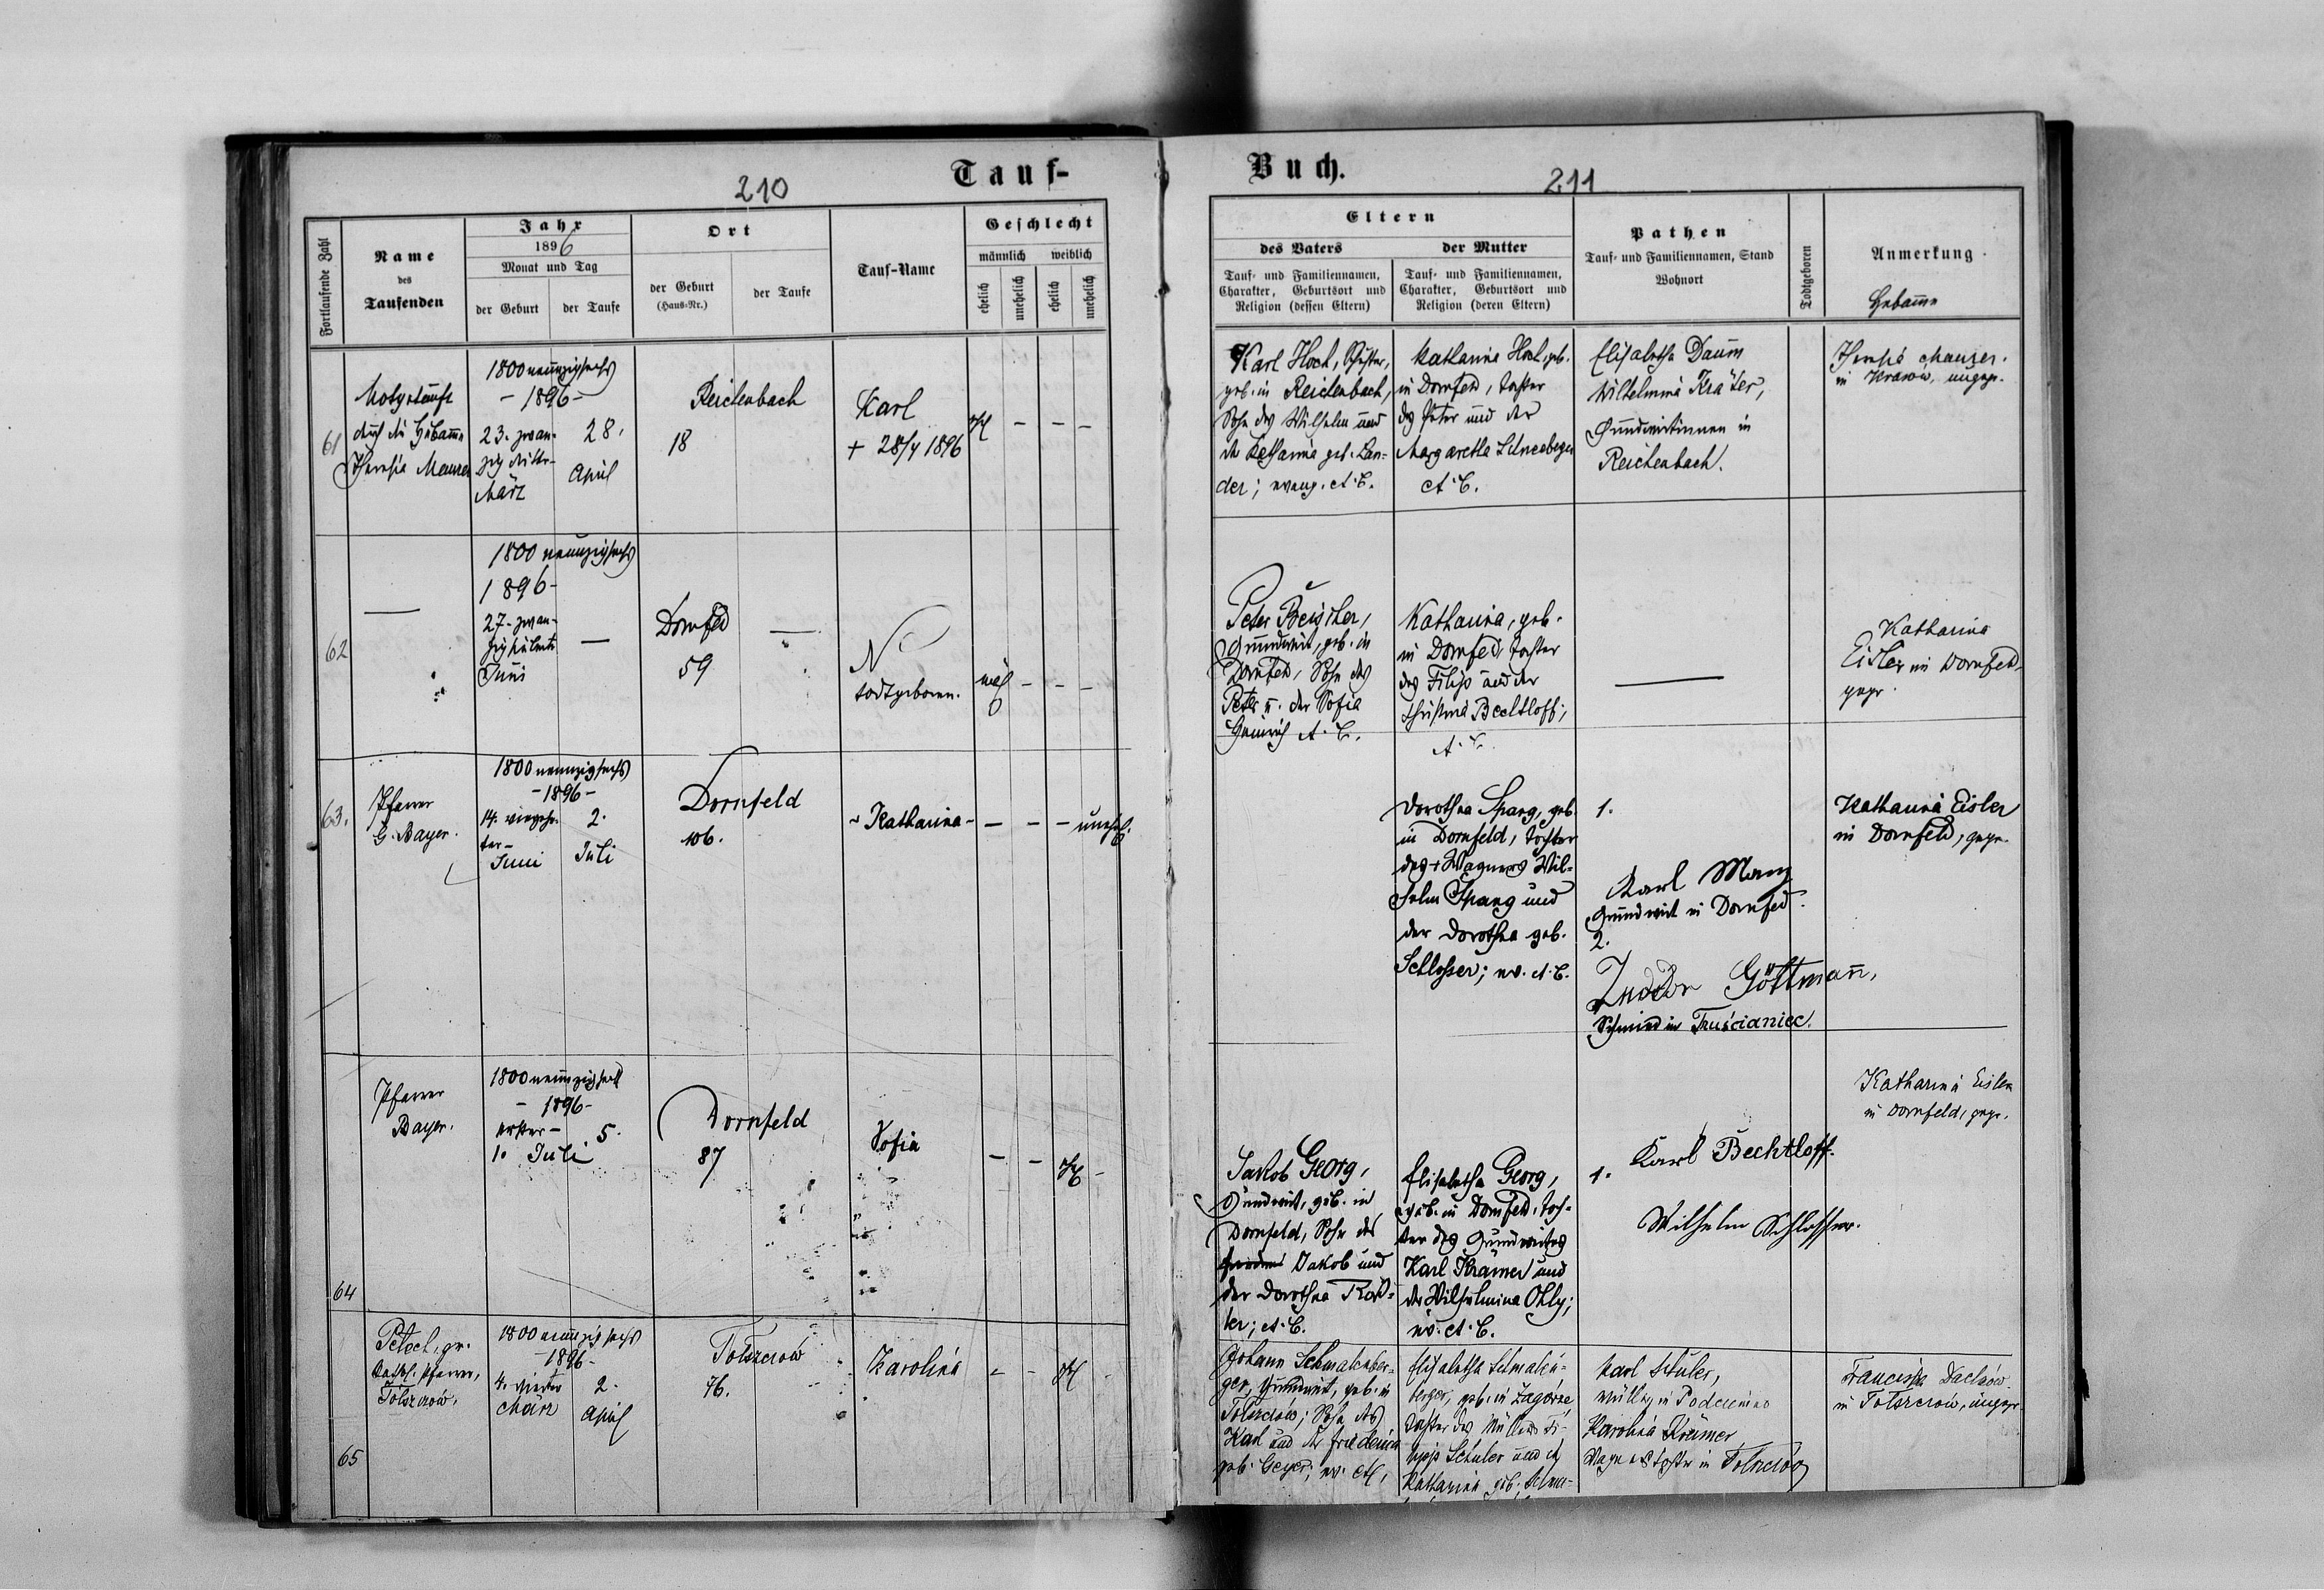 Tauf-
210
Fortlaufende Zahl
Name
des
Taufenden
Jahr
1896
Monat und Tag
der Geburt
der Taufe
Ort
der Geburt
(Haus-Nr.)
der Taufe
Tauf-Name
Geschlecht
männlich
weiblich
ehelich
unehelich
ehelich
unehelich
61
Notgetauft
durch die Hebamme
Theresia Meurer
1800 neunzigsechs
- 1896 -
23. zwan-
zig dritte-
März
28.
April
Reichenbach
18
Karl
+ 28/4 1896
62
1800 neunzigsechs
1896 -
27. zwan-
zig
Juni
Dornfeld
59
N
todtgeboren.
63.
Pfarrer
G. Bayer.
1800 neunzigsechs
- 1896 -
14. vierzehn-
ter -
Juni
2.
Juli
Dornfeld
106.
- Katharina -
unehel.
64
Pfarrer
Bayer.
1800 neunzigsechs
- 1896 -
erster -
1. Juli
5.
Dornfeld
87
Sofia
65
gr.
kathol. Pfarrer,
Tolszczów.
1800 neunzigsechs
- 1896 -
4. vierter
März
2.
April
Tolszczów
76.
Karolina
Buch.
211
Eltern
des Vaters
Tauf- und Familiennamen,
Charakter, Geburtsort und
Religion (dessen Eltern)
der Mutter
Tauf- und Familiennamen,
Charakter, Geburtsort und
Religion (deren Eltern)
Pathen
Tauf- und Familiennamen, Stand
Wohnort
Todtgeboren
Anmerkung.
Hebamme
Karl Hoch,
geb. in Reichenbach,
Sohn des Wilhelm und
der Katharina geb. Lan-
der; evang. A. C.
Katharina Hoch, geb.
in Dornfeld, Tochter
des Peter und der
Margaretha Schneeberger
A. C.
Elisabetha Daum
Wilhelmina Kräter,
Grundwirtinnen in
Reichenbach.
in Krasów, ungepr.
Peter
Grundwirt, geb. in
Dornfeld, Sohn des
Peter u. der Sofia
Heinrich A. C.
Katharina, geb.
in Dornfeld, Tochter
des Filipp und der
Christina Bechtloff;
A. C.
Katharina
Eisler in Dornfeld,
gepr.
Dorothea Spang, geb.
in Dornfeld, Tochter
des + Wagners Wil-
helm Spang und
der Dorothea geb.
Schlosser; ev. A. C.
1.
Karl Manz
Grundwirt in Dornfeld.
2.
Göttmann,
Schmied in Truścianiec.
Katharina Eisler
in Dornfeld, gepr.
Jakob Georg,
Grundwirt, geb. in
Dornfeld, Sohn des
Jakob und
der Dorothea
ter; A. C.
Elisabetha Georg,
geb. in Dornfeld, Toch-
ter des Grundwirtes
Karl Kramer und
der Wilhelmina Ohly;
ev. A. C.
1.
Karl Bechtloff.
Wilhelm Schlosser.
Katharina Eisler
in Dornfeld, gepr.
Johann Schmalenber-
ger, Grundwirt, geb. in
Tolszczów; Sohn des
Karl und der Friederica
geb. Geyer; ev.
Elisabetha Schmalen-
berger, geb. in Zagórze,
Tochter des Müllers Fi-
lipp Schuler und der
Katharina geb.
Karl Schuler,
Müller in
Karolina Krämer
Wagnerstochter in Tolszczów
Franciska
in Tolszczów, ungepr.